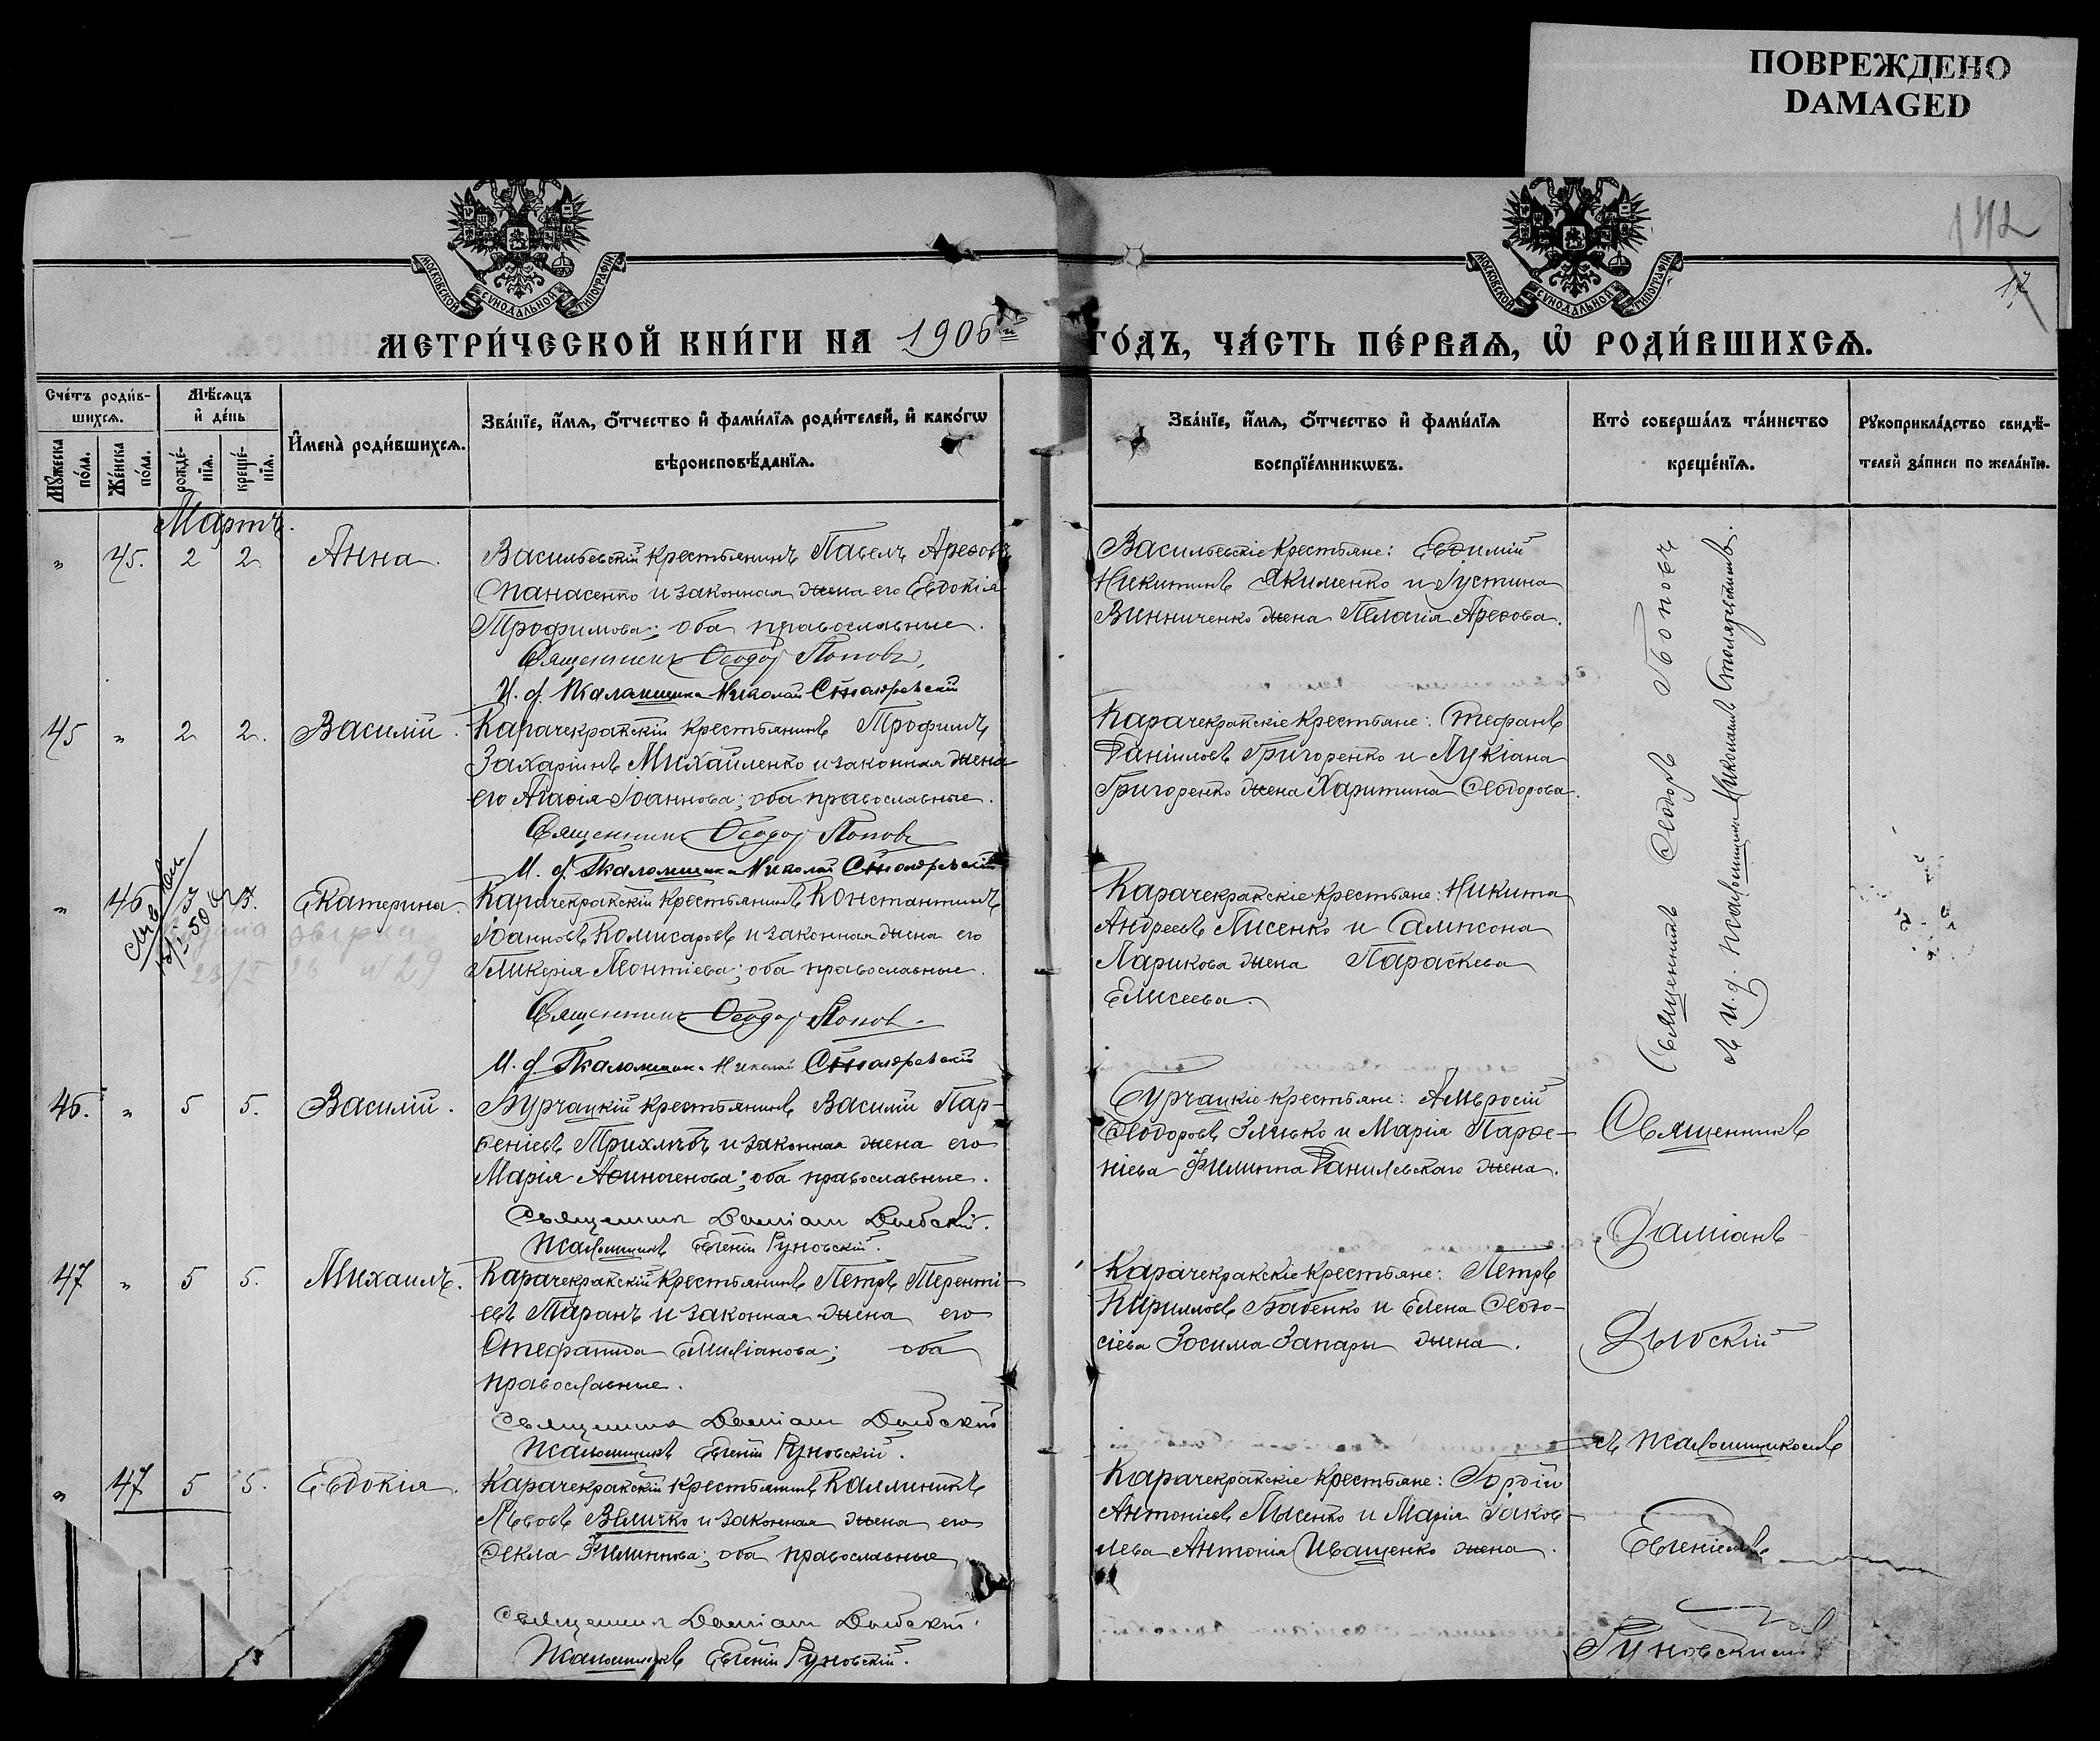 ПОВРЕЖДЕНО
DAMAGED
142
17
МОСКОВСКОЙ СѴНОДАЛЬНОЙ ТИПОГРАФІИ
МОСКОВСКОЙ СѴНОДАЛЬНОЙ ТИПОГРАФІИ
МЕТРИ́ЧЕСКОЙ КНИ́ГИ НА 1906й ГО́ДЪ, ЧА́СТЬ ПЕ́РВАѦ, Ѡ РОДИ́ВШИХСѦ.
Сче́тъ роди́в-
шихсѧ.
Мѣ́сѧцъ
и де́нь
Мꙋ́жеска
по́ла.
Же́нска
по́ла.
рожде́-
нїѧ.
креще́-
нїѧ.
Имена̀ роди́вшихсѧ.
Зва́нїе, и́мѧ, ѻ́тчество и фами́лїѧ роди́телей, и како́гѡ
вѣроисповѣ́данїѧ.
Зва́нїе, и́мѧ, ѻ́тчество и фами́лїѧ
воспрїе́мникѡвъ.
Кто̀ соверша́лъ та́инство
креще́нїѧ.
Рꙋкоприкла́дство свидѣ́-
телей за́писи по жела́нїю.
Мартъ.
„ 45. 2 2. Анна.
Васильевскій крестьянинъ Павелъ Ареѳовъ
Панасенко и законная жена его Евдокія
Трофимова; оба православные.
Священникъ Ѳеодоръ Поповъ.
И. д. Псаломщика Николай Столяревскій
Васильевскіе крестьяне: Евѳимій
Никитинъ Якименко и Іустина
Винниченко жена Пелагія Ареѳова.
45 „ 2 2. Василій.
Карачекракскій крестьянинъ Трофимъ
Захаріинъ Михайленко и законная жена
его Агаѳія Іоаннова; оба православные.
Священникъ Ѳеодоръ Поповъ
И. д. Псаломщика Николай Столяревскій
Карачекракскіе крестьяне: Стефанъ
Даніиловъ Григоренко и Лукіана
Григоренко жена Харитина Ѳеодорова.
Священникъ Ѳеодоръ Поповъ
съ И. д. псаломщика Николаемъ Столяревскимъ.
„ 46 3 3. Екатерина.
Карачекракскій крестьянинъ Константинъ
Іоанновъ Комисаровъ и законная жена его
Гликерія Леонтіева; оба православные.
Священникъ Ѳеодоръ Поповъ.
И. д. Псаломщика Николай Столяревскій
Карачекракскіе крестьяне: Никита
Андреевъ Лисенко и Сампсона
Ларикова жена Параскева
Елисеева.
46. „ 5 5. Василій.
Бурчацкій крестьянинъ Василій Пар-
ѳеніевъ Трихлѣбъ и законная жена его
Марія Аѳиногенова; оба православные.
Священникъ Даміанъ Дымскій.
Псаломщикъ Евгеній Руновскій.
Бурчацкіе крестьяне: Амвросій
Ѳеодоровъ Зинько и Марія Парѳе-
ніева Филиппа Данилевскаго жена.
Священникъ
Даміанъ
47 „ 5 5. Михаилъ.
Карачекракскій крестьянинъ Петръ Теренті-
евъ Таранъ и законная жена его
Стефанида Емиліанова; оба
православные.
Псаломщикъ Евгеній Руновскій.
Карачекракскіе крестьяне: Петръ
Кирилловъ Бабенко и Елена Ѳеодо-
сіева Зосима Запары жена.
съ псаломщикомъ
„ 47 5 5. Евдокія.
Карачекракскій крестьянинъ Каллиникъ
Львовъ Величко и законная жена его
Ѳекла Филиппова; оба православные
Псаломщикъ Евгеній Руновскій.
Карачекракскіе крестьяне: Гордій
Антоніевъ Лысенко и Марія Іаков-
лева Антонія Иващенко жена.
Евгеніемъ
Руновскимъ